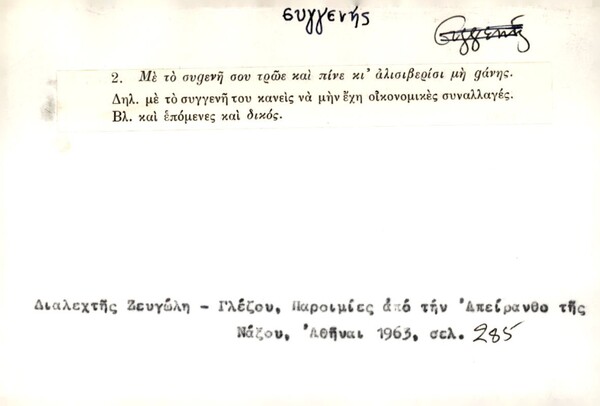 συγγενής
συγγενής
2. Μὲ τὸ συgενῆ σου τρῶε καὶ πίνε κι' ἀλισιβερίσι μὴ gάνης.
Δηλ. μὲ τὸ συγγενῆ του κανεὶς νὰ μὴν ἔχη οἰκονομικὲς συναλλαγές.
Βλ. καὶ ἑπόμενες καὶ δικός.
Διαλεχτῆς Ζευγώλη - Γλέζου, Παροιμίες ἀπό τήν 'Απείρανθο τῆς
Νάξου, 'Αθῆναι 1963, σελ. 285